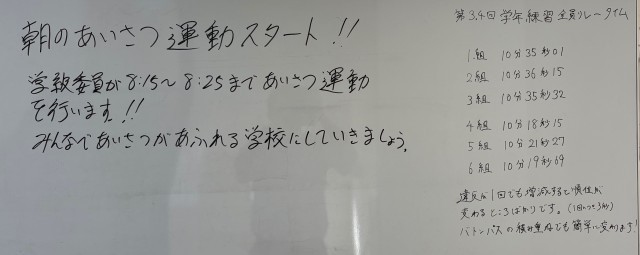 朝のあいさつ運動スタート!!
学級委員が8:15～8:25まであいさつ運動
を行います!!
みんなであいさつがあふれる学校にしていきましょう。
第3,4回 学年練習 全員リレータイム
1組 10分35秒01
2組 10分36秒15
3組 10分35秒32
4組 10分18秒15
5組 10分21秒27
6組 10分19秒69
違反が1回でも増減すると順位が
変わるところばかりです。(1回につき3秒)
バトンパスの積み重ねでも簡単に変わります!